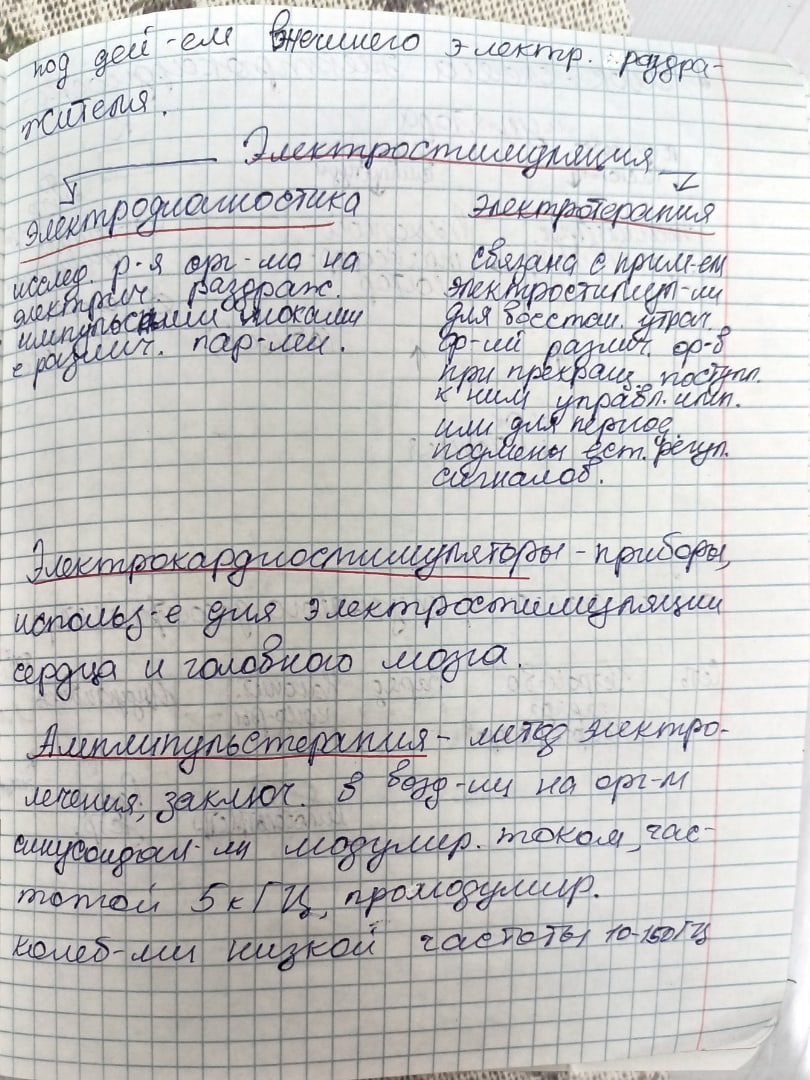 под дей-ем внешнего электр. раздра-
жителя.
Электростимуляция
Электродиагностика
исслед. р-я орг-ма на
электрич. раздраж.
импульсными токами
с различ. пар-ми.
Электротерапия
связана с прим-ем
электростимул-ии
для восстан. утрач.
ф-ий различ. ор-в
при прекращ. поступл.
к ним управл. имп.
или для период.
подмены ест. регул.
сигналов.
Электрокардиостимуляторы - приборы,
использ-е для электростимуляции
сердца и головного мозга.
Амплипульстерапия - метод электро-
лечения, заключ. в возд-ии на орг-м
синусоидал-ми модулир. током, час-
тотой 5 кГЦ, промодулир.
колеб-ми низкой частоты 10-150ГЦ